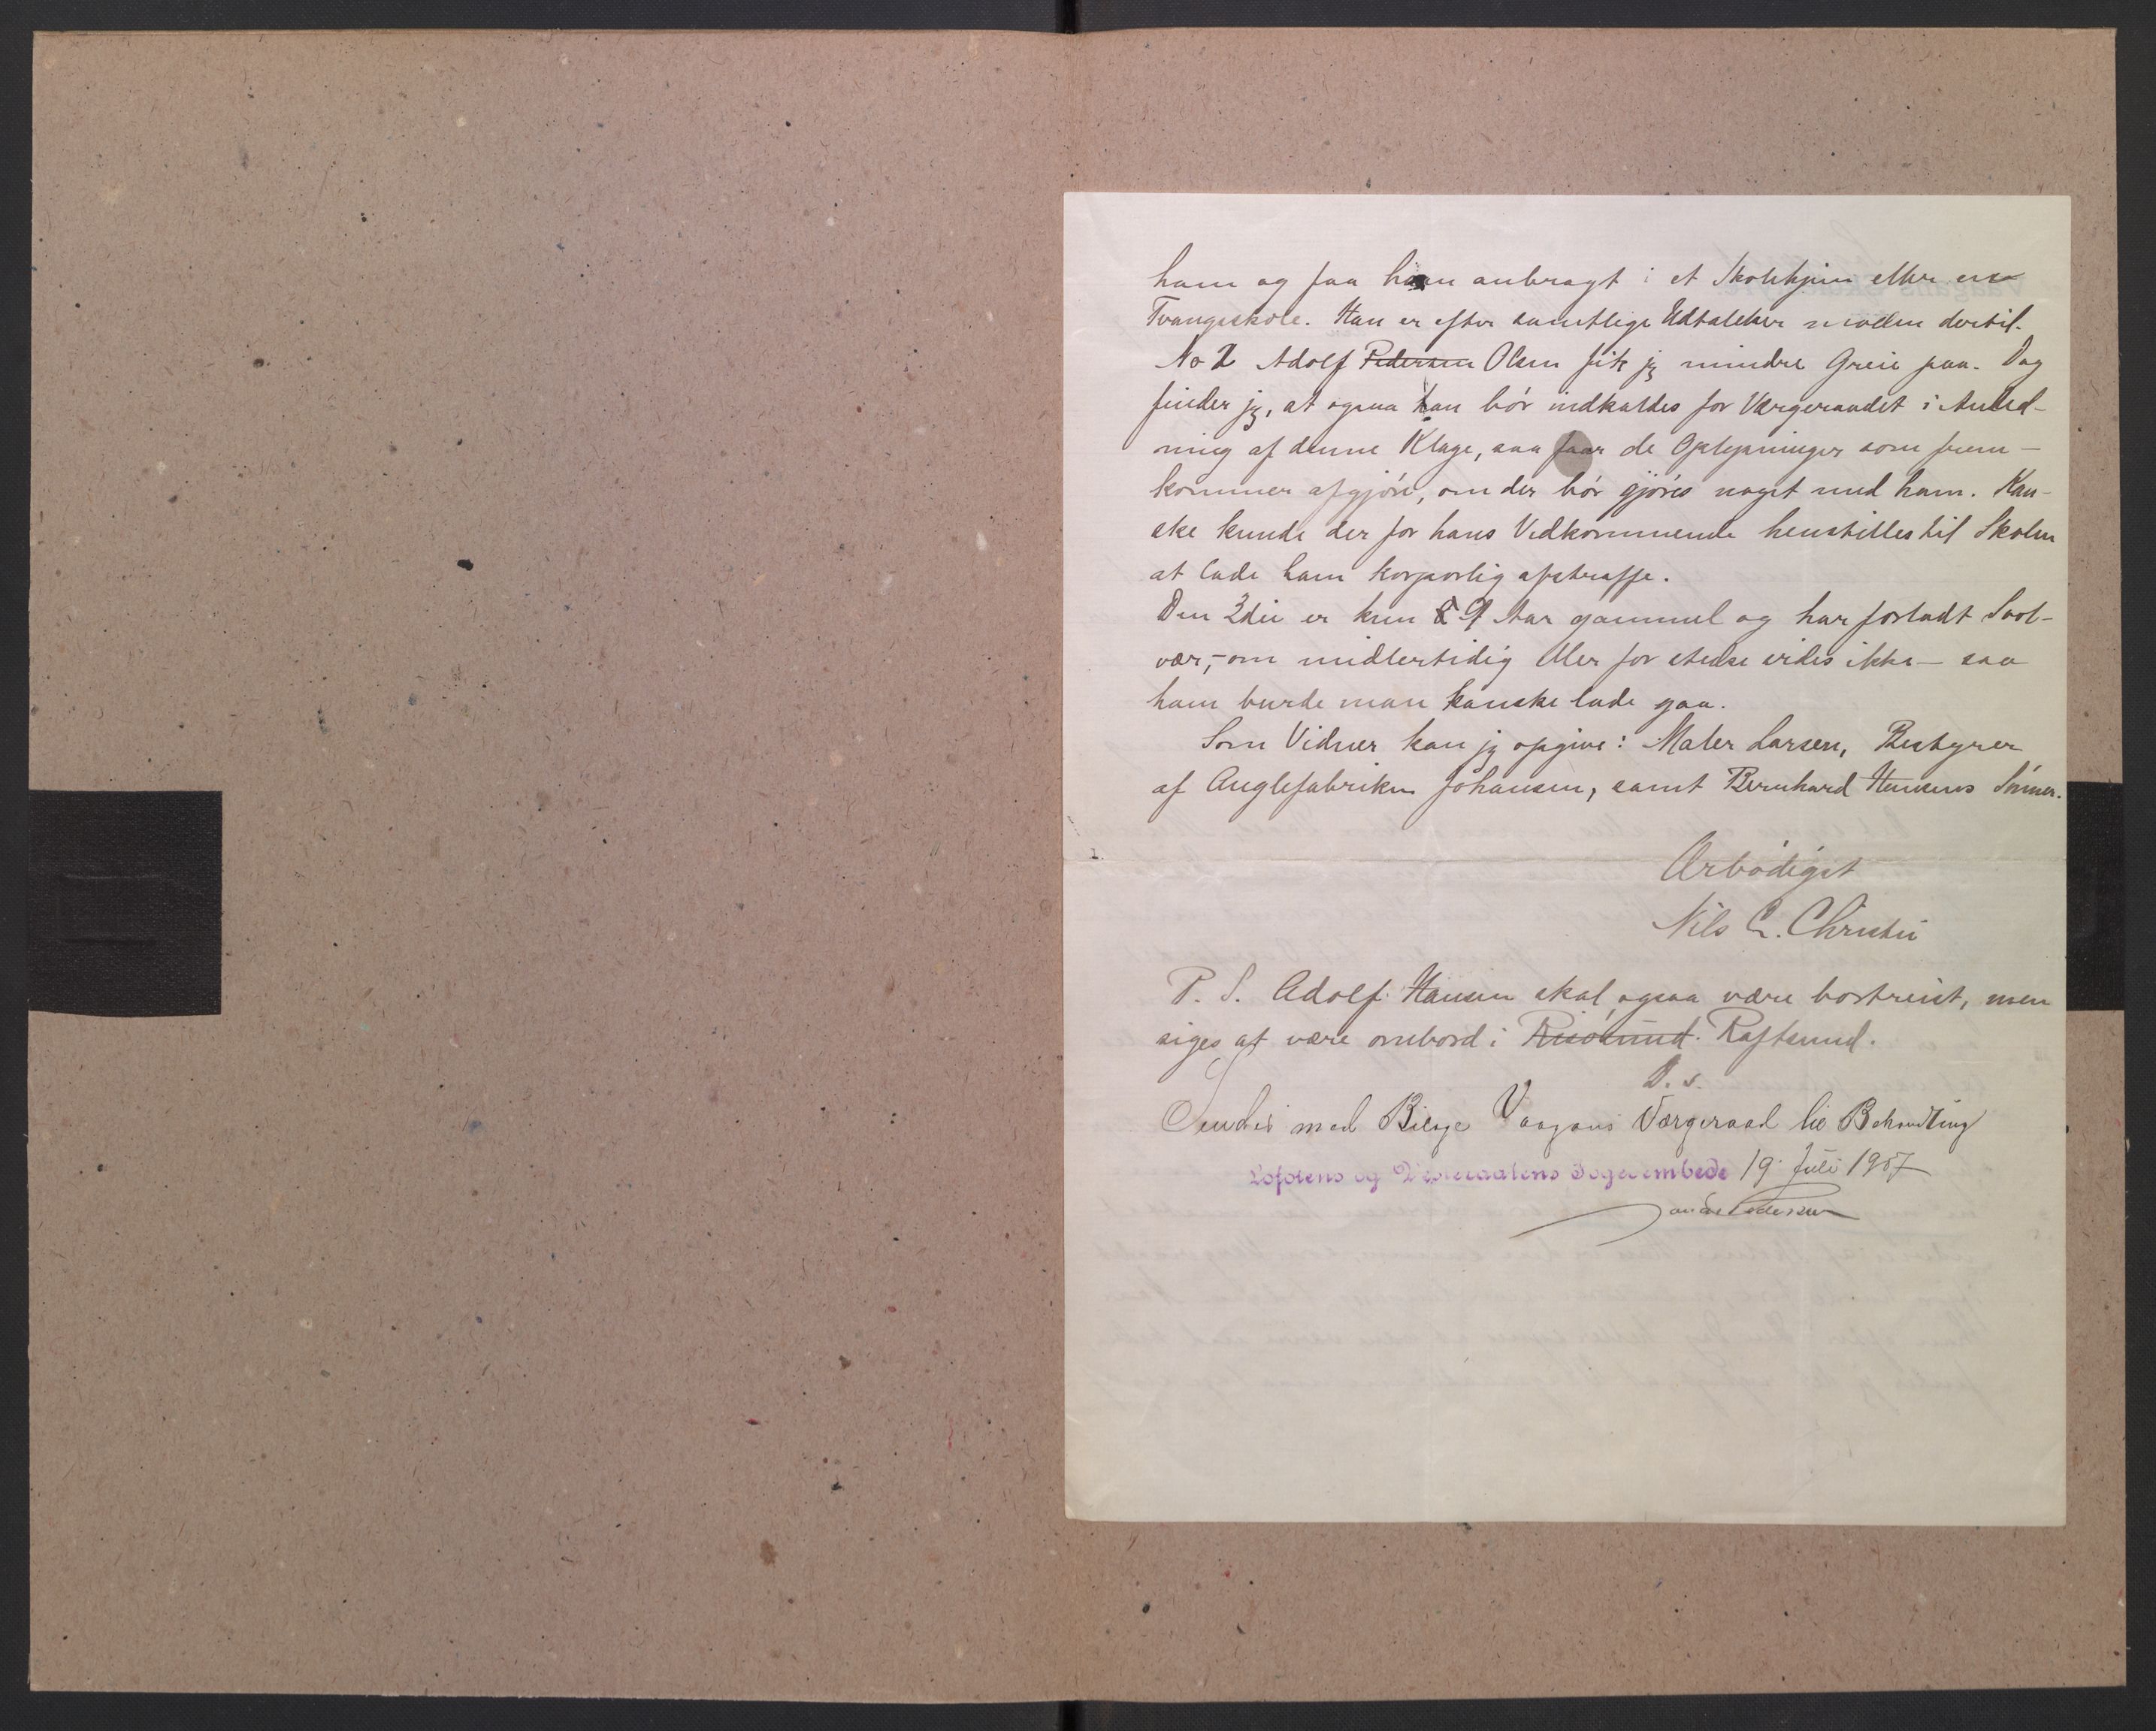 ham og faa ham anbragt i et Skolehjem eller en
Tvangsskole. Han er efter samtlige Udtalelser moden dertil.
No 2 Adolf Pedersen Olsen fik jeg mindre Greie paa. Dog
finder jeg, at ogsaa han bör indkaldes for Værgeraadet i Anled-
ning af denne Klage, saa faar de Oplysninger som frem-
kommer afgjöre, om der bör gjöres noget med ham. Kan-
ske kunde der for hans Vedkommende henstilles til Skolen
at lade ham korporlig afstraffe.
Den 3die er kun 9 Aar gammel og har forladt Svol-
vær, - om midlertidig eller for stedse vides ikke - saa
ham burde man kanske lade gaa.
Som Vidner kan jeg opgive: Maler Larsen, Bestyrer
af Anglefabriken Johansen, samt Bernhard Hansens Sönner.
Ærbödigst
Nils C. Christie
P. S. Adolf Hansen skal ogsaa være bortreist, men
siges at være ombord i Risösund. Raftsund.
D. s.
Sendes med Bilage Vaagans Værgeraad til Behandling
Lofotens og Vesteraalens Sogeembede 19 Juli 1907